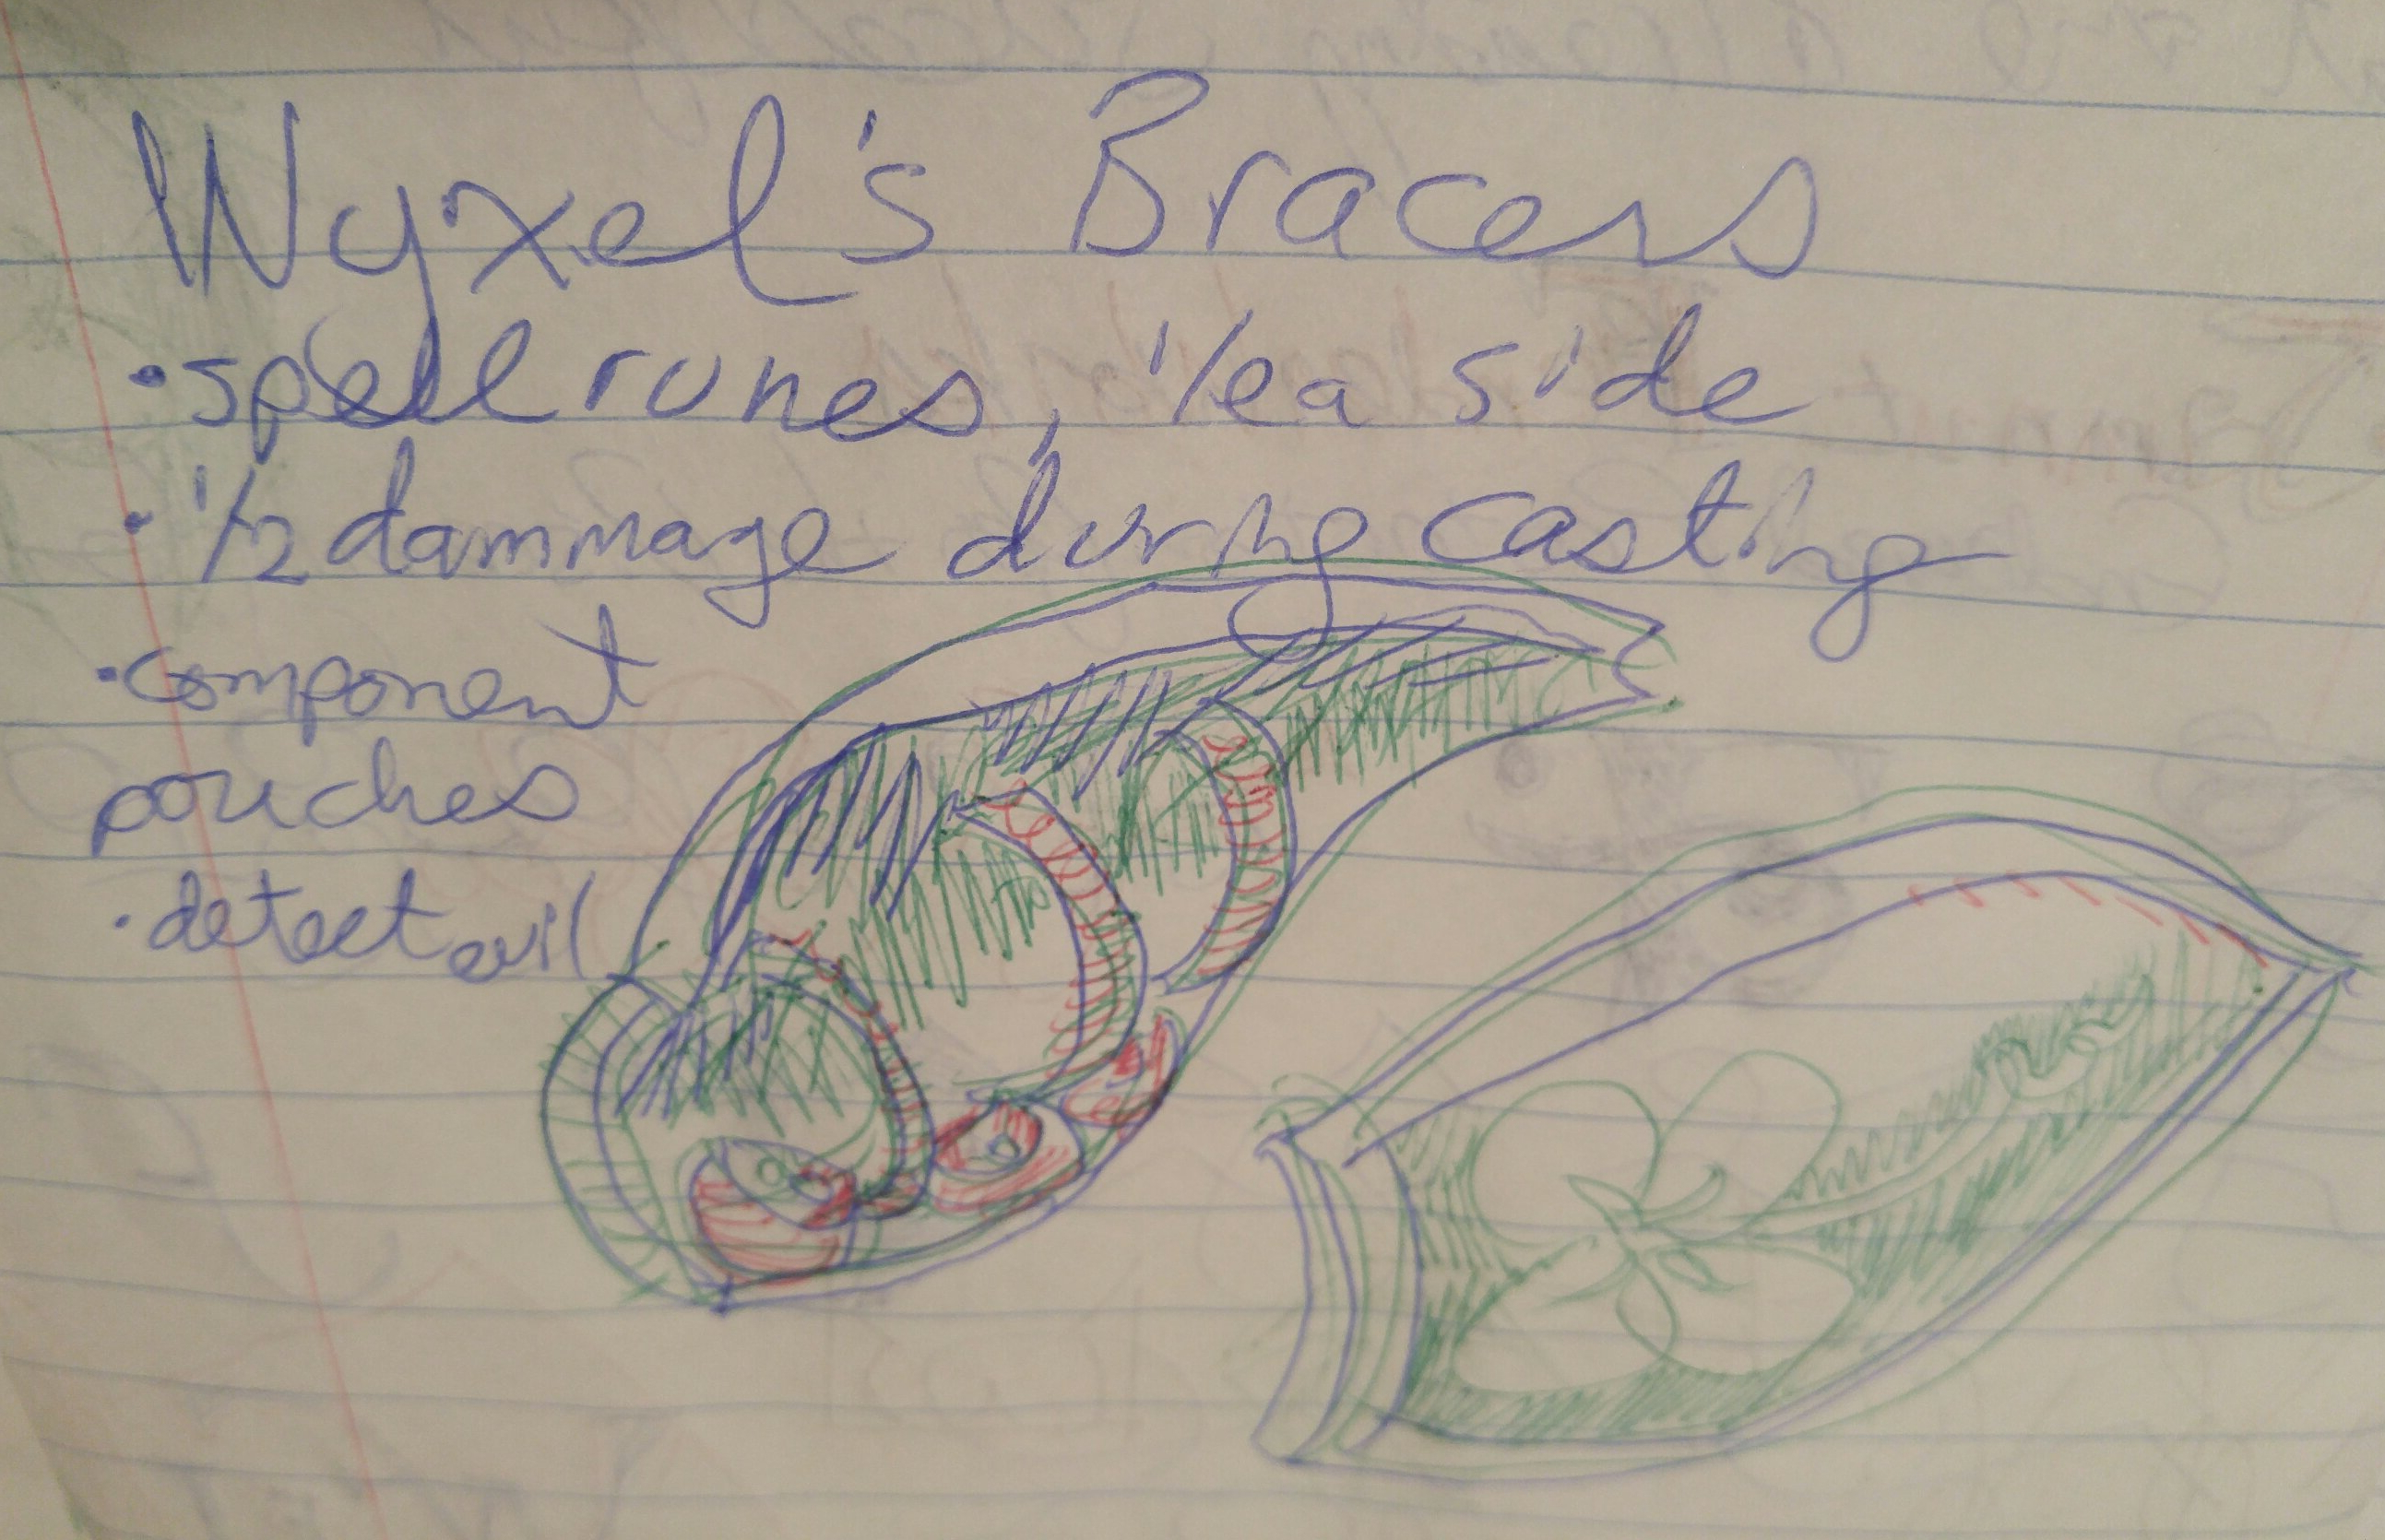 Wyxel's Bracers
• spell runes, 1/ea side
• 1/2 dammage during casting
• component
pouches
• detect evil